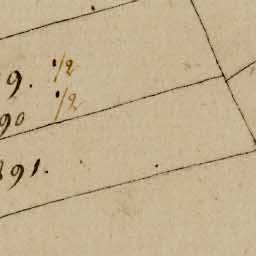 9. 1/2
90 1/2
891.